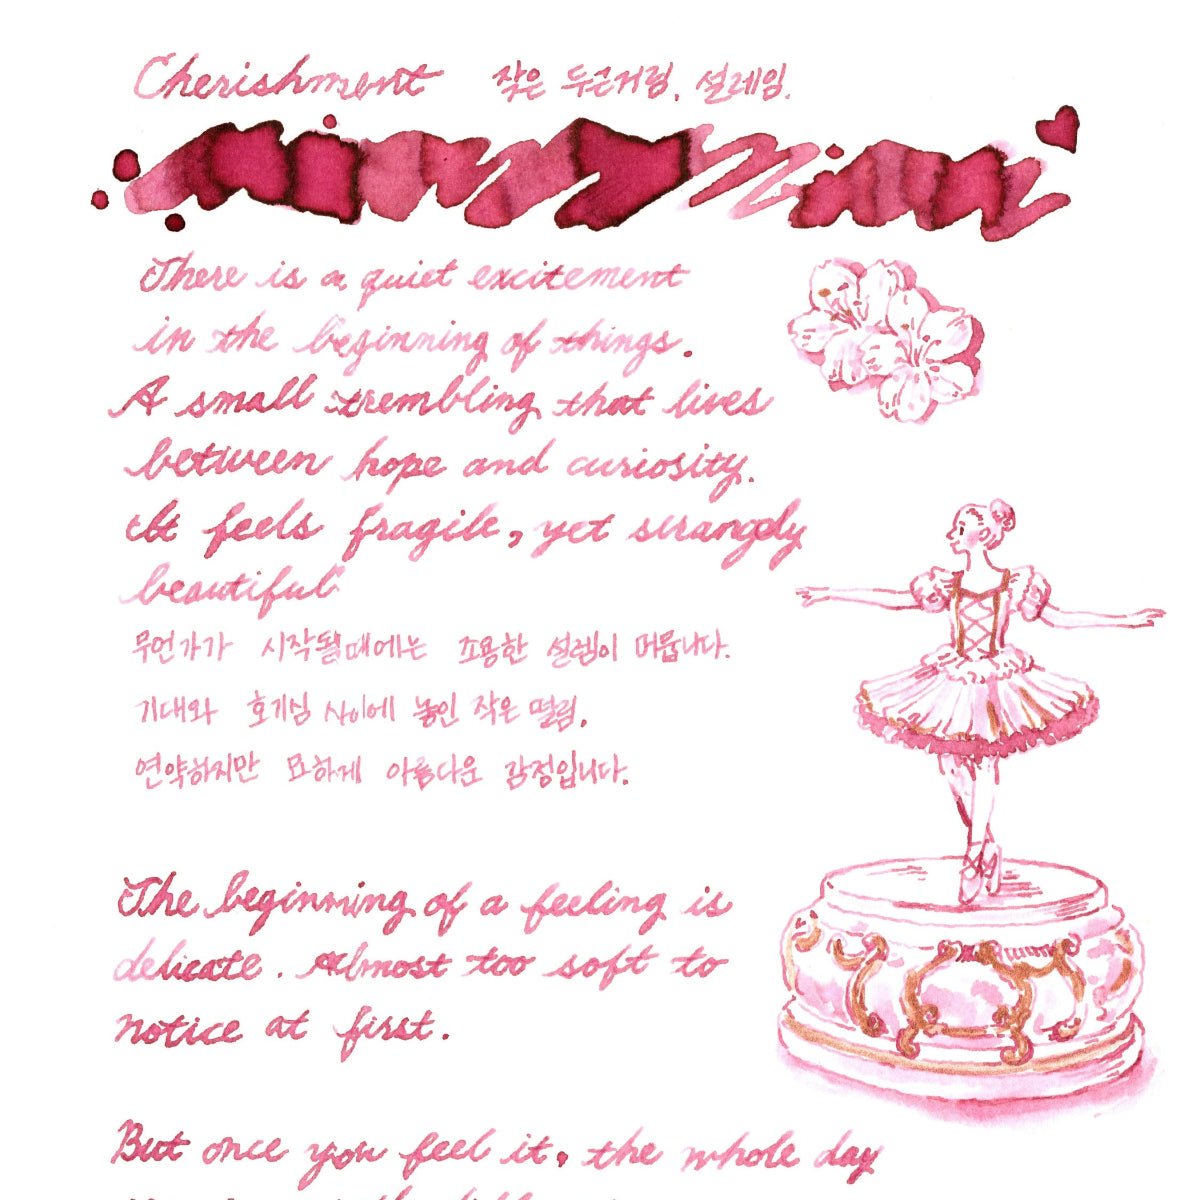 Cherishment 작은 두근거림, 설레임.
There is a quiet excitement
in the beginning of things.
A small trembling that lives
between hope and curiosity.
It feels fragile, yet strangely
beautiful
무언가가 시작될때에는 조용한 설렘이 머뭅니다.
기대와 호기심 사이에 놓인 작은 떨림.
연약하지만 묘하게 아름다운 감정입니다.
The beginning of a feeling is
delicate. Almost too soft to
notice at first.
But once you feel it, the whole day